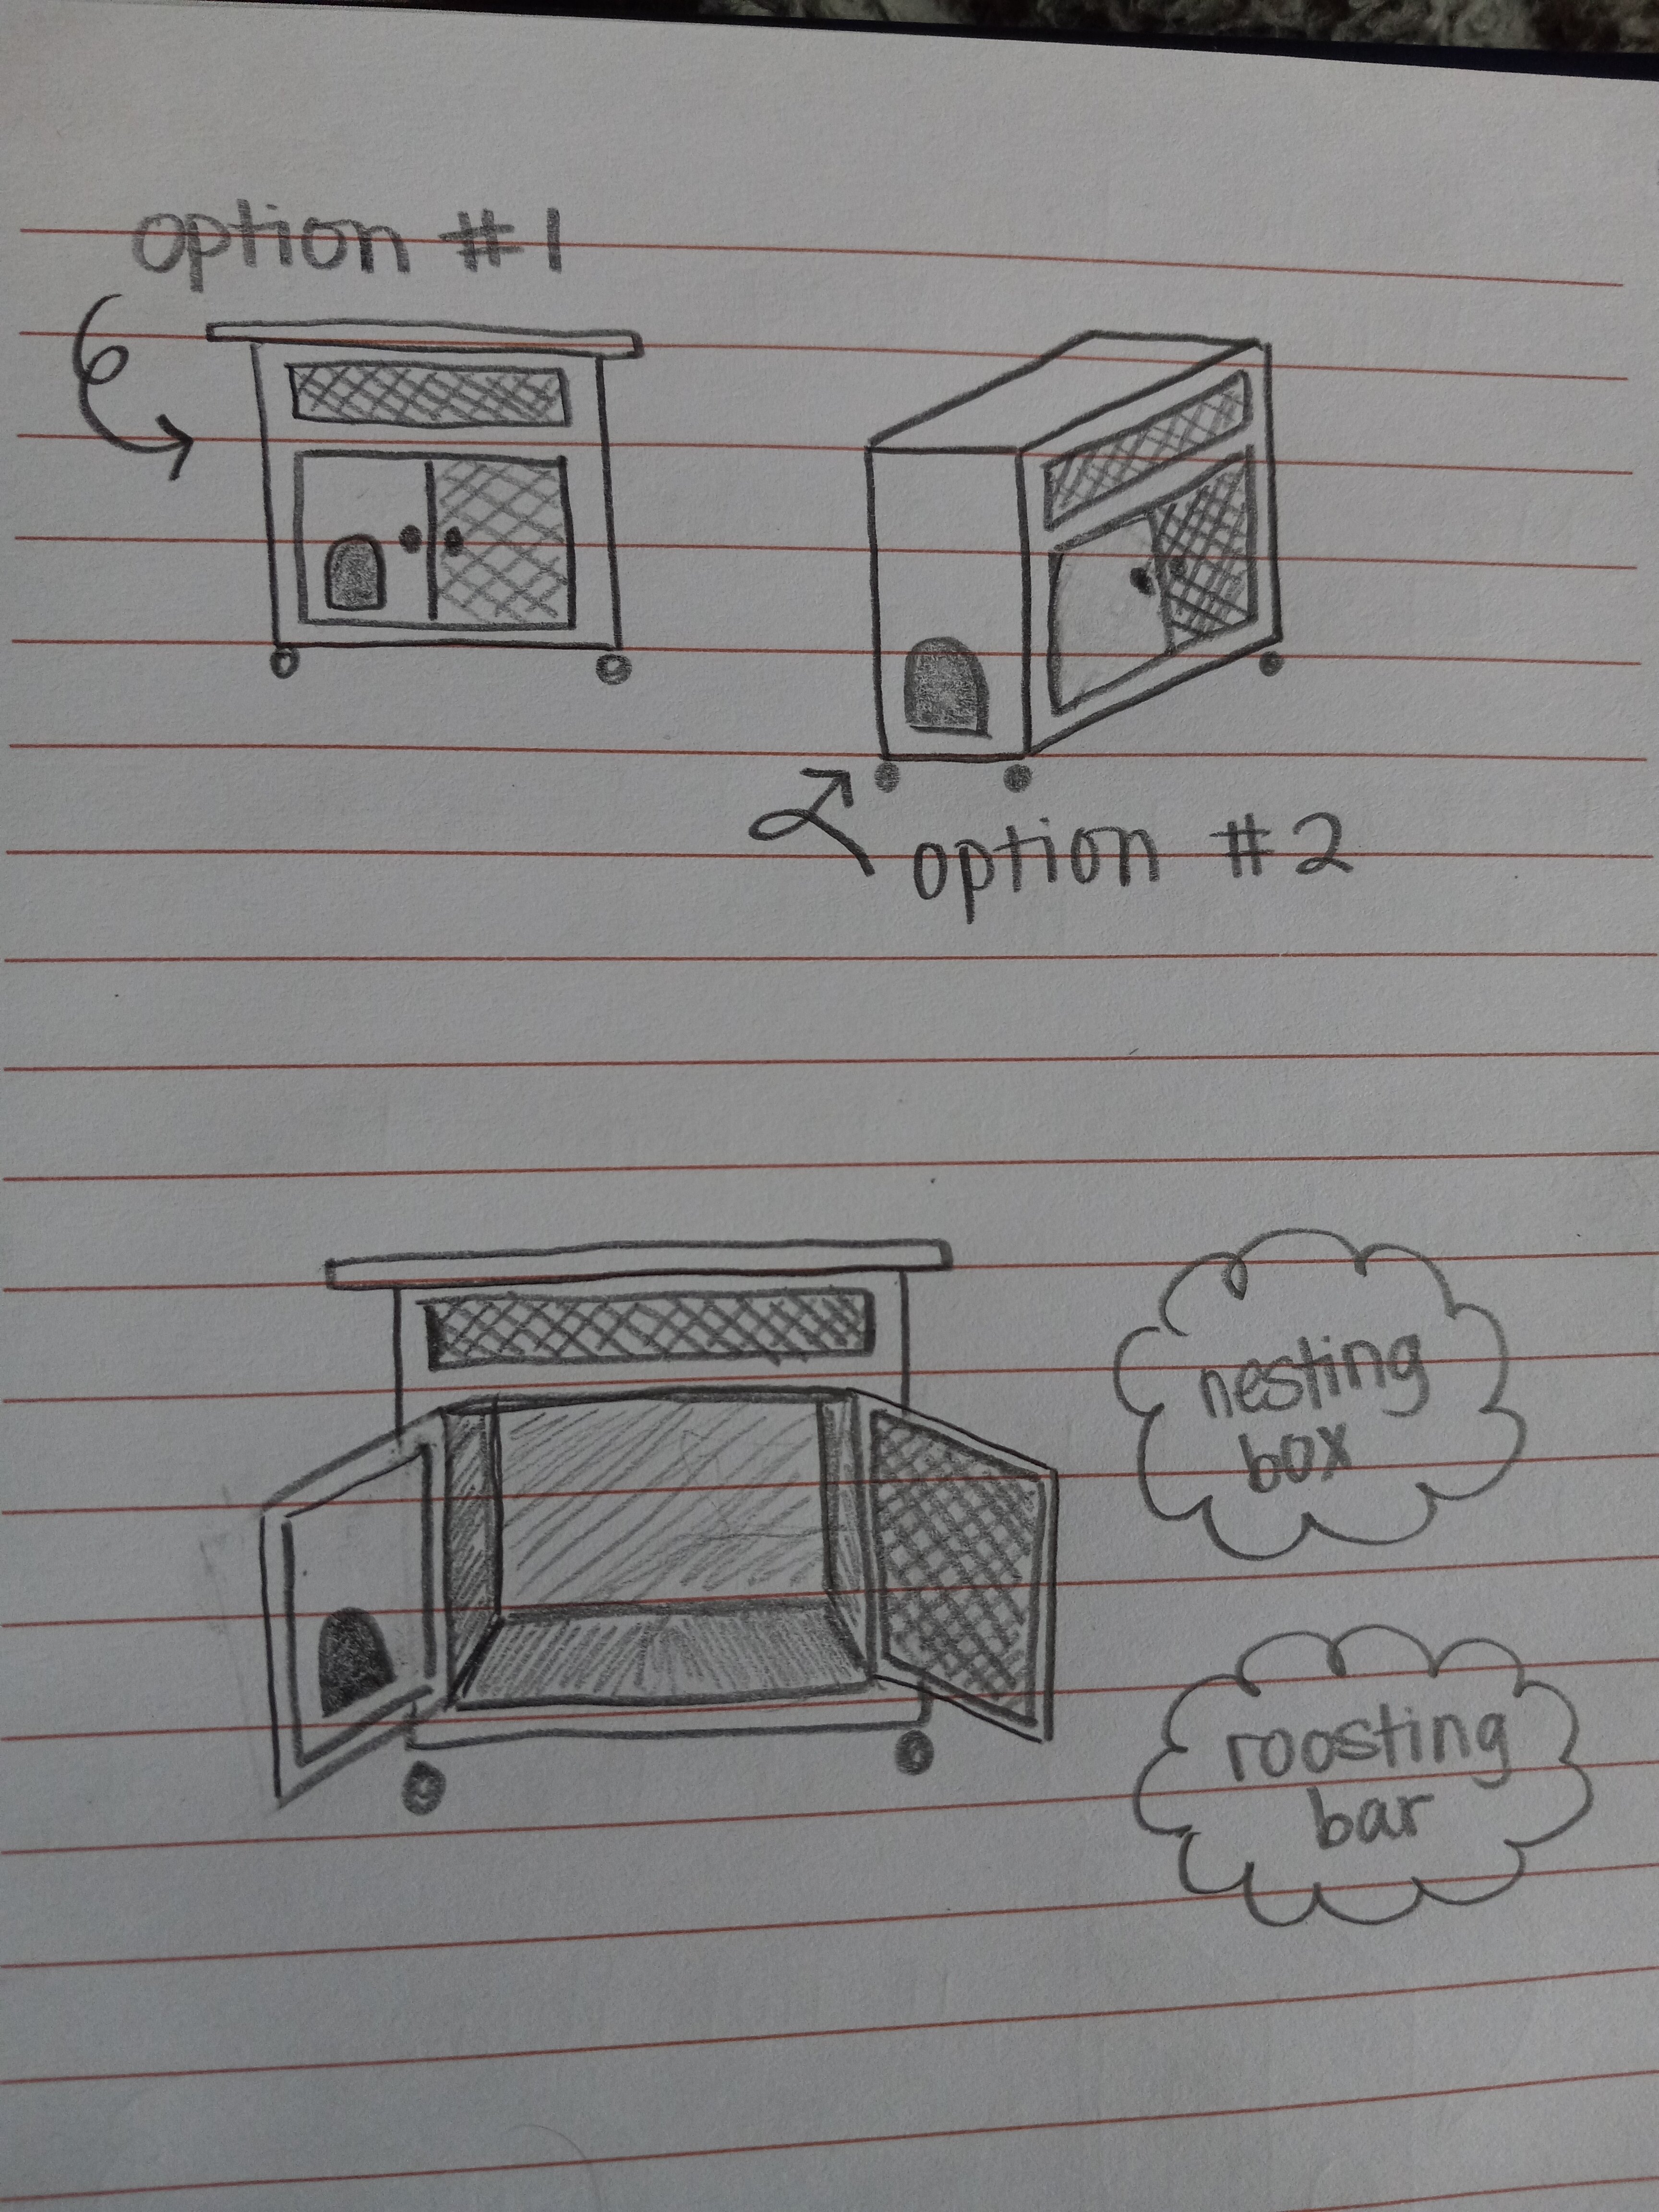 option #1
option #2
nesting
box
roosting
bar